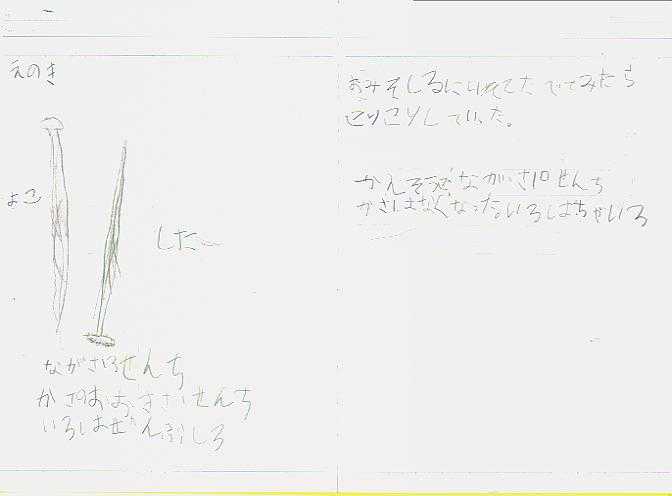 えのき
よこ
した
ながさ13せんち
かさのおおきさ1せんち
いろはぜんぶしろ
おみそしるにいれてたべてみたら
こりこりしていた。
かんそうご ながさ10せんち
かさはなくなったいろはちゃいろ